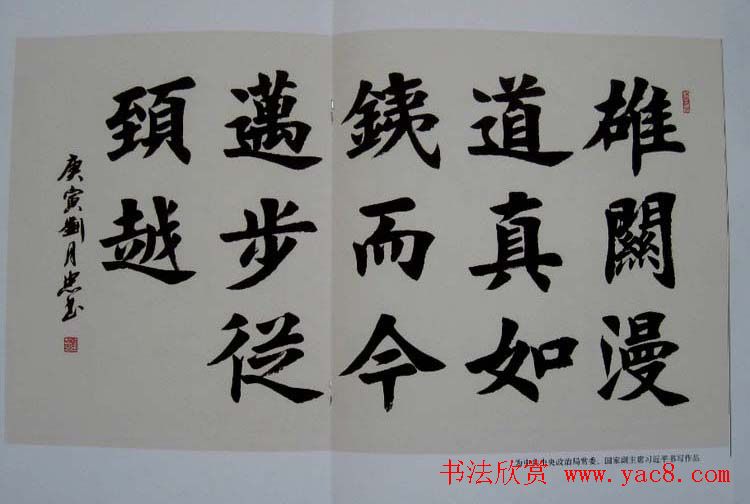 雄關漫
道真如
銕而今
邁步從
頭越
庚寅劉月忠书
为中共中央政治局常委、国家副主席习近平书写作品
书法欣赏 www.yac8.com